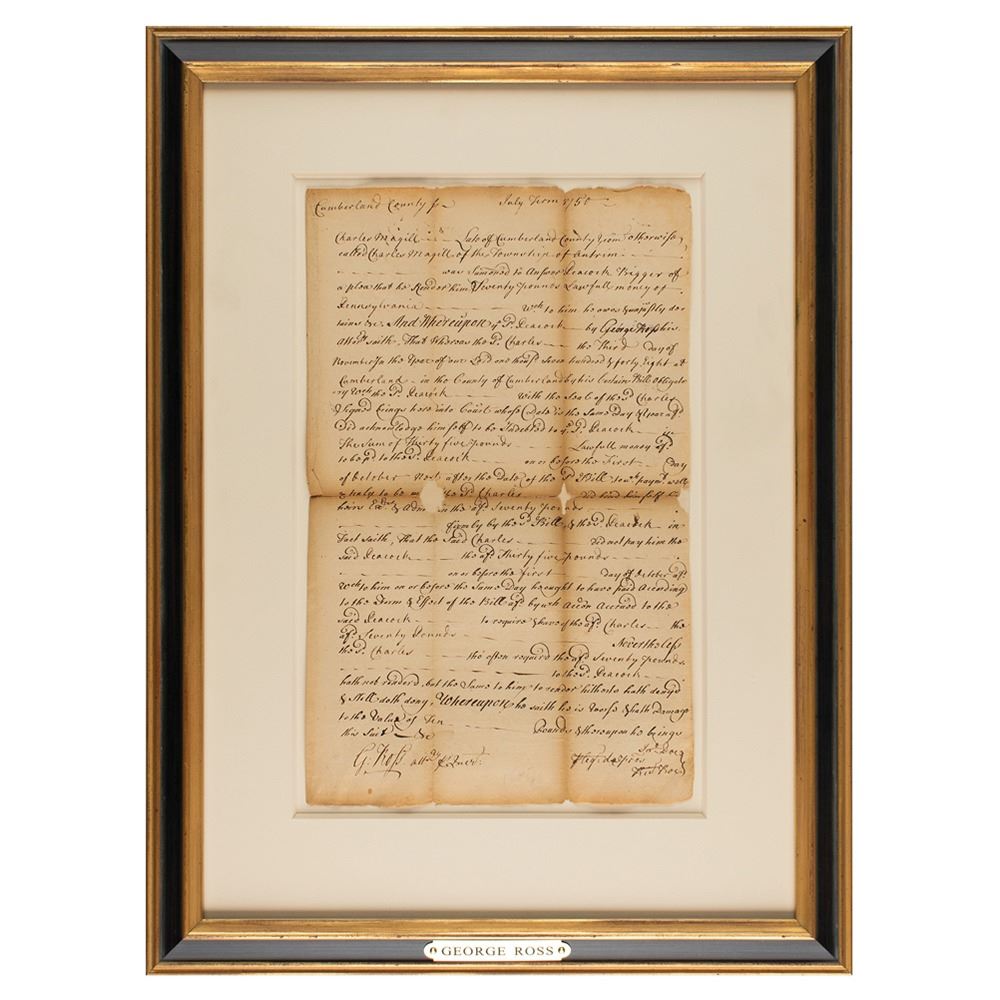 Cumberland County ss July Term 1750
Charles Magill Late of Cumberland County Yeom otherwise
called Charles Magill of the Township of Antrim
was Sumoned to Answer Peacock Bigger of
a plea that he Render him Seventy pounds Lawfull money of
Pennsylvania Wch to him he owes & unjustly de
tains &c. And Whereupon ye Sd. Peacock by George Ross his
attory saith, That Whereas the Sd. Charles the Third day of
November In the Year of our Lord one thous. Seven hundred & forty Eight at
Cumberland in the County of Cumberland by his Certain Bill obligator
ry Wch the Sd. Peacock With the Seal of the Sd Charles
& Signed brings here into Court whose Date is the Same Day & Year afd
Did acknowledge himself to be Indebted to ye Sd. Peacock in
The Sum of Thirty five pounds Lawfull money afd
to be pd. to the Sd. Peacock on or before the First Day
of October Next after the Date of the Sd Bill to wch paymt. well
& truly to be the Sd. Charles Did bind himself
heirs Exrs. & Adm in the afd Seventy pounds
firmly by the Sd. Bill, & the Sd. Peacock in
Fact saith, That the Said Charles Did not pay him the
said Peacock the afd Thirty five pounds
on or before the first day of October afd
Wch to him on or before the Same Day he ought to have paid According
to the Form & Effect of the Bill afd by wch Accon Accrued to the
said Peacock to require & have of the afd. Charles the
afd. Seventy Pounds Nevertheless
the Sd. Charles tho often requird the afd Seventy pounds
to the Sd. Peacock
hath not renderd, but the Same to him to render hitherto hath denyd
& Still doth deny, Whereupon he saith he is Worse & hath Damage
to the Value of Ten Pounds & thereupon he brings
this Suit &c
G. Ross attory Quer:
Plegs de pros Jno Doe
Ricd Roe
GEORGE ROSS